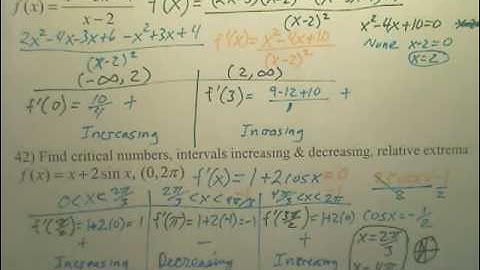 f(x) = x-2 f'(x) = (x-2)²
2x²-4x-3x+6 -x²+3x+4 f'(x) = x²-4x+10 x²-4x+10=0
(x-2)² (x-2)² None x-2=0
x=2
(-∞, 2) (2, ∞)
f'(0) = 10/4 + f'(3) = 9-12+10/1 +
Increasing Increasing
42) Find critical numbers, intervals increasing & decreasing, relative extrema
f(x) = x + 2 sin x, (0, 2π) f'(x) = 1 + 2cosx = 0
0<x<2π/3 2π/3<x<4π/3 4π/3<x<2π
f'(π/2)=1+2(0)=1 f'(π)=1+2(-1)=-1 f'(3π/2)=1+2(0) cosx=-1/2
+ - + x=2π/3
Increasing Decreasing Increasing x=4π